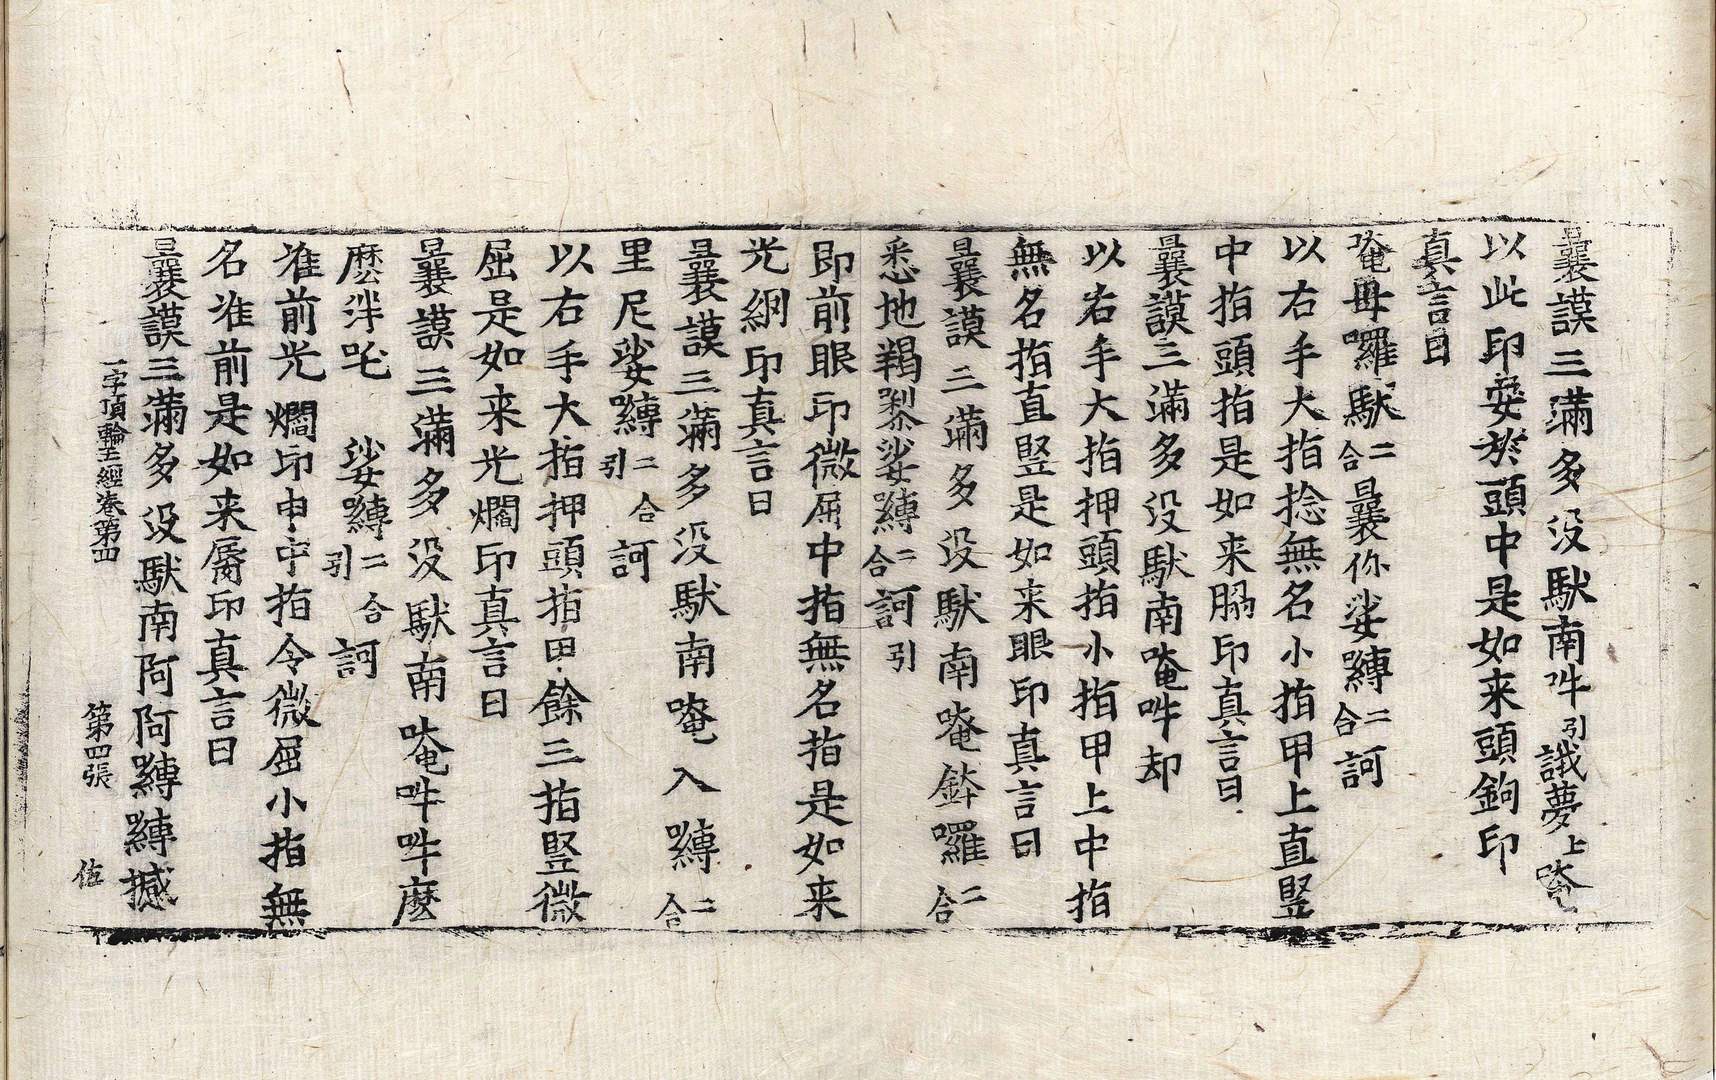 曩謨三滿多没馱南吽引誐夢上唵
以此印安於頭中是如来頭鉤印
真言曰
唵毋囉馱二合曩你娑嚩二合訶
以右手大指捻無名小指甲上直竪
中指頭指是如来脇印真言曰
曩謨三滿多没馱南唵吽却
以右手大指押頭指小指甲上中指
無名指直竪是如来眼印真言曰
曩謨三滿多没馱南唵鉢囉二合
悉地羯㗚娑嚩二合訶引
即前眼印微屈中指無名指是如来
光網印真言曰
曩謨三滿多没馱南唵入嚩二合
里尼娑嚩二合引訶
以右手大指押頭指甲餘三指竪微
屈是如来光爓印真言曰
曩謨三滿多没馱南唵吽吽麽
麽泮吒娑嚩二合引訶
准前光爓印申中指令微屈小指無
名准前是如来脣印真言曰
曩謨三滿多没馱南阿阿嚩嚩撼
一字頂輪王經卷第四 第四張 伍